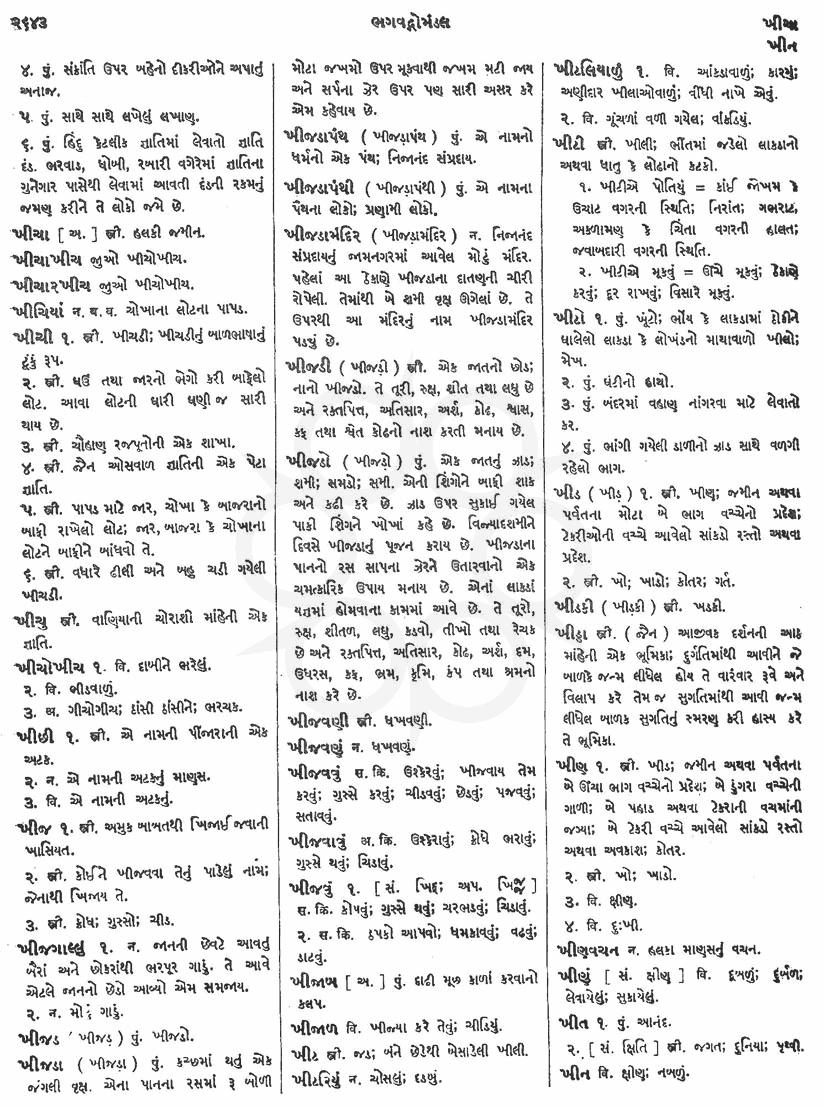 ૨૬૪૩
ભગવદ્ગોમંડલ
ખીચા
ખીન
૪. પું. સંક્રાંતિ ઉપર બહેનો દીકરીઓને અપાતું
અનાજ.
૫. પું. સાથે સાથે લખેલું લખાણ.
૬. પું. હિંદુ કેટલીક જ્ઞાતિમાં લેવાતો જ્ઞાતિ
દંડ. ભરવાડ, ધોબી, રબારી વગેરેમાં જ્ઞાતિના
ગુનેગાર પાસેથી લેવામાં આવતી દંડની રકમનું
જમણ કરીને તે લોકો જમે છે.
ખીચા [ અ. ] સ્ત્રી. હલકી જમીન.
ખીચાખીચ જુઓ ખીચોખીચ.
ખીચારખીચ જુઓ ખીચોખીચ.
ખીચિયાં ન. બ. વ. ચોખાના લોટના પાપડ.
ખીચી ૧. સ્ત્રી. ખીચડી; ખીચડીનું બાળભાષાનું
ટૂંકું રૂપ.
૨. સ્ત્રી. ઘઉં તથા જારનો ભેગો કરી બાફેલો
લોટ. આવા લોટની ઘારી ઘણી જ સારી
થાય છે.
૩. સ્ત્રી. ચૌહાણ રજપૂતોની એક શાખા.
૪. સ્ત્રી. જૈન ઓસવાળ જ્ઞાતિની એક પેટા
જ્ઞાતિ.
૫. સ્ત્રી. પાપડ માટે જાર, ચોખા કે બાજરાનો
બાફી રાખેલો લોટ; જાર, બાજરા કે ચોખાના
લોટને બાફીને બાંધવો તે.
૬. સ્ત્રી. વધારે ઢીલી અને બહુ ચડી ગયેલી
ખીચડી.
ખીચુ સ્ત્રી. વાણિયાની ચોરાશી માંહેની એક
જ્ઞાતિ.
ખીચોખીચ ૧. વિ. દાબીને ભરેલું.
૨. વિ. ભીડવાળું.
૩. અ. ગીચોગીચ; ઠાંસી ઠાંસીને; ભરચક.
ખીછી ૧. સ્ત્રી. એ નામની પીંજારાની એક
અટક.
૨. ન. એ નામની અટકનું માણસ.
૩. વિ. એ નામની અટકનું.
ખીજ ૧. સ્ત્રી. અમુક બાબતથી ખિજાઈ જવાની
ખાસિયત.
૨. સ્ત્રી. કોઈને ખીજવવા તેનું પાડેલું નામ;
જેનાથી ખિજાય તે.
૩. સ્ત્રી. ક્રોધ; ગુસ્સો; ચીડ.
ખીજગાલ્લું ૧. ન. જાનની છેવટે આવતું
બૈરાં અને છોકરાંથી ભરપૂર ગાડું. તે આવે
એટલે જાનનો છેડો આવ્યો એમ સમજાય.
૨. ન. મોટું ગાડું.
ખીજડ ( ખીજડ઼ ) પું. ખીજડો.
ખીજડા ( ખીજડ઼ા ) પું. કચ્છમાં થતું એક
જંગલી વૃક્ષ. એના પાનના રસમાં રૂ બોળી
મોટા જખમો ઉપર મૂકવાથી જખમ મટી જાય
અને સર્પના ઝેર ઉપર પણ સારી અસર કરે
એમ કહેવાય છે.
ખીજડાપંથ ( ખીજડ઼ાપંથ ) પું. એ નામનો
ધર્મનો એક પંથ; નિજાનંદ સંપ્રદાય.
ખીજડાપંથી ( ખીજડ઼ાપંથી ) પું. એ નામના
પંથના લોકો; પ્રણામી લોકો.
ખીજડામંદિર ( ખીજડ઼ામંદિર ) ન. નિજાનંદ
સંપ્રદાયનું જામનગરમાં આવેલ મોટું મંદિર.
પહેલાં આ ઠેકાણે ખીજડાના દાતણની ચીરી
રોપેલી. તેમાંથી બે શમી વૃક્ષ ઊગેલાં છે. તે
ઉપરથી આ મંદિરનું નામ ખીજડામંદિર
પડ્યું છે.
ખીજડી ( ખીજડ઼ી ) સ્ત્રી. એક જાતનો છોડ;
નાનો ખીજડો. તે તૂરી, રુક્ષ, શીત તથા લઘુ છે
અને રક્તપિત્ત, અતિસાર, અર્શ, કોઢ, શ્વાસ,
કફ તથા શ્વેત કોઢનો નાશ કરતી મનાય છે.
ખીજડો ( ખીજડ઼ો ) પું. એક જાતનું ઝાડ;
શમી; સમડો; સમી. એની શિંગોને બાફી શાક
અને કઢી કરે છે. ઝાડ ઉપર સુકાઈ ગયેલ
પાકી શિંગને ખોખાં કહે છે. વિજયાદશમીને
દિવસે ખીજડાનું પૂજન કરાય છે. ખીજડાના
પાનનો રસ સાપના ઝેરને ઉતારવાનો એક
ચમત્કારિક ઉપાય મનાય છે. એનાં લાકડાં
યજ્ઞમાં હોમવાના કામમાં આવે છે. તે તૂરો,
રુક્ષ, શીતળ, લઘુ, કડવો, તીખો તથા રેચક
છે અને રક્તપિત્ત, અતિસાર, કોઢ, અર્શ, દમ,
ઉધરસ, કફ, ભ્રમ, કૃમિ, કંપ તથા શ્રમનો
નાશ કરે છે.
ખીજવણી સ્ત્રી. ધખવણી.
ખીજવણું ન. ધખવણું.
ખીજવવું સ. ક્રિ. ઉશ્કેરવું; ખીજવાય તેમ
કરવું; ગુસ્સે કરવું; ચીડવવું; છેડવું; પજવવું;
સતાવવું.
ખીજવાવું અ. ક્રિ. ઉશ્કેરાવું; ક્રોધે ભરાવું;
ગુસ્સે થવું; ચિડાવું.
ખીજવું ૧. [ સં. ખિદ્; અપ. ખિજ્જ ]
સ. ક્રિ. કોપવું; ગુસ્સે થવું; ચરભડવું; ચિડાવું.
૨. સ. ક્રિ. ઠપકો આપવો; ધમકાવવું; વઢવું;
ડાટવું.
ખીજાબ [ અ. ] પું. દાઢી મૂછ કાળાં કરવાનો
કલપ.
ખીજાળ વિ. ખીજ્યા કરે તેવું; ચીડિયું.
ખીટ સ્ત્રી. જડ; બંને છેડેથી બેસાડેલી ખીલી.
ખીટરિયું ન. ચોસલું; દડબું.
ખીટલિયાળું ૧. વિ. આંકડાવાળું; કારમું;
અણીદાર ખીલાઓવાળું; વીંધી નાખે એવું.
૨. વિ. ગૂંચળાં વળી ગયેલ; વાંકડિયું.
ખીટી સ્ત્રી. ખીલી; ભીંતમાં જડેલો લાકડાનો
અથવા ધાતુ કે લોઢાનો કટકો.
૧. ખીટીએ પોતિયું = કાંઈ જોખમ કે
ઉચાટ વગરની સ્થિતિ; નિરાંત; ગભરાટ,
અકળામણ કે ચિંતા વગરની હાલત;
જવાબદારી વગરની સ્થિતિ.
૨. ખીટીએ મૂકવું = ઊંચે મૂકવું; ઠેકાણે
કરવું; દૂર રાખવું; વિસારે મૂકવું.
ખીટો ૧. પું. ખૂંટો; ભોંય કે લાકડામાં ઠોકીને
ઘાલેલો લાકડા કે લોખંડનો માથાવાળો ખીલો;
મેખ.
૨. પું. ઘંટીનો હાથો.
૩. પું. બંદરમાં વહાણ નાંગરવા માટે લેવાતો
કર.
૪. પું. ભાંગી ગયેલી ડાળીનો ઝાડ સાથે વળગી
રહેલો ભાગ.
ખીડ ( ખીડ઼ ) ૧. સ્ત્રી. ખીણ; જમીન અથવા
પર્વતના મોટા બે ભાગ વચ્ચેનો પ્રદેશ;
ટેકરીઓની વચ્ચે આવેલો સાંકડો રસ્તો અથવા
પ્રદેશ.
૨. સ્ત્રી. ખો; ખાડો; કોતર; ગર્ત.
ખીડકી ( ખીડ઼કી ) સ્ત્રી. ખડકી.
ખીડ્ડા સ્ત્રી. ( જૈન ) આજીવક દર્શનની આઠ
માંહેની એક ભૂમિકા; દુર્ગતિમાંથી આવીને જે
બાળકે જન્મ લીધેલ હોય તે વારંવાર રૂવે અને
વિલાપ કરે તેમ જ સુગતિમાંથી આવી જન્મ
લીધેલ બાળક સુગતિનું સ્મરણ કરી હાસ્ય કરે
તે ભૂમિકા.
ખીણ ૧. સ્ત્રી. ખીડ; જમીન અથવા પર્વતના
બે ઊંચા ભાગ વચ્ચેનો પ્રદેશ; બે ડુંગરા વચ્ચેની
ગાળી; બે પહાડ અથવા ટેકરાની વચમાંની
જગ્યા; બે ટેકરી વચ્ચે આવેલો સાંકડો રસ્તો
અથવા અવકાશ; કોતર.
૨. સ્ત્રી. ખો; ખાડો.
૩. વિ. ક્ષીણ.
૪. વિ. દુઃખી.
ખીણવચન ન. હલકા માણસનું વચન.
ખીણું [ સં. ક્ષીણ ] વિ. દૂબળું; દુર્બળ;
લેવાયેલું; સુકાયેલું.
ખીત ૧. પું. આનંદ.
૨. [ સં. ક્ષિતિ ] સ્ત્રી. જગત; દુનિયા; પૃથ્વી.
ખીન વિ. ક્ષીણ; નબળું.